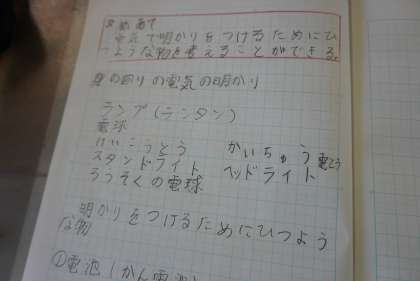 めあて
電気で明かりをつけるためにひ
つような物を考えることができる。
身の回りの電気の明かり
ランプ(ランタン)
電球
けいこうとう かいちゅう電とう
スタンドライト ヘッドライト
ろうそくの電球
明かりをつけるためにひつよう
な物
①電池(かん電池)